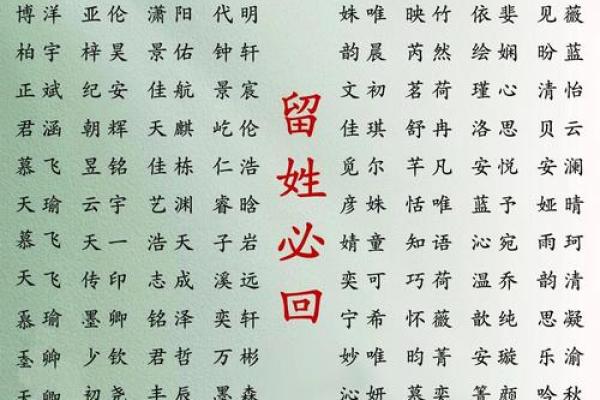 博洋 亚伦 潇阳 代明
柏宇 梓昊 景佑 钟轩
正斌 纪安 佳航 景宸
君涵 朝辉 天麒 屹伦
慕飞 昱铭 佳栋 仁浩
天瑜 云宇 艺渊 睿晗
慕飞 天一 浩天 子岩
天飞 传印 志成 溪远
瑜 墨卿 铭泽 奕轩
卿 少钦 君哲 万彬
天卿 初尧 丰辰 墨森
留姓必回
姝唯 映竹 依斐 见薇
韵晨 芮然 绘娴 昐蓝
文初 茗荷 瑾心 清怡
佳琪 舒冉 洛思 贝云
觅尔 芊凡 安悦 安澜
彦姝 恬唯 蓝予 娅晴
婧童 知语 沁宛 雨珂
奕可 巧荷 温乔 韵清
宁希 怀薇 歆纯 思凝
妙唯 昀菁 安璇 乐渝
沁妍 慕奕 箐颜 吟秋